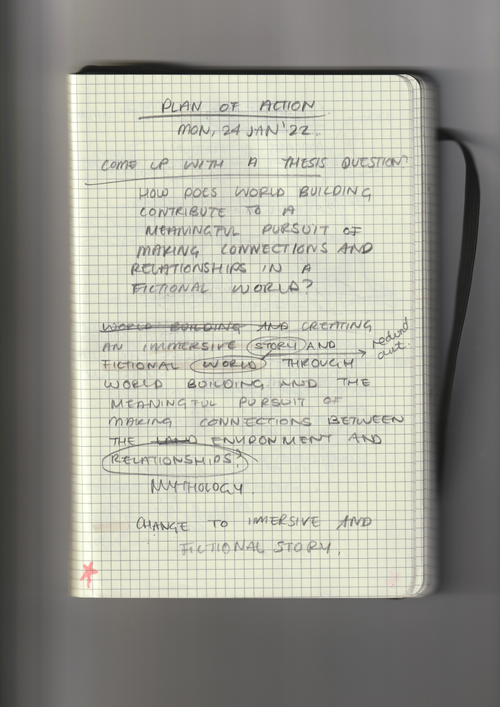 PLAN OF ACTION
MON, 24 JAN'22.
COME UP WITH A THESIS QUESTION?
HOW DOES WORLD BUILDING
CONTRIBUTE TO A
MEANINGFUL PURSUIT OF
MAKING CONNECTIONS AND
RELATIONSHIPS IN A
FICTIONAL WORLD?
WORLD BUILDING AND CREATING
AN IMMERSIVE STORY AND
redund
ant.
FICTIONAL WORLD THROUGH
WORLD BUILDING AND THE
MEANINGFUL PURSUIT OF
MAKING CONNECTIONS BETWEEN
THE LAND ENVIRONMENT AND
RELATIONSHIPS?
MYTHOLOGY.
CHANGE TO IMERSIVE AND
FICTIONAL STORY.